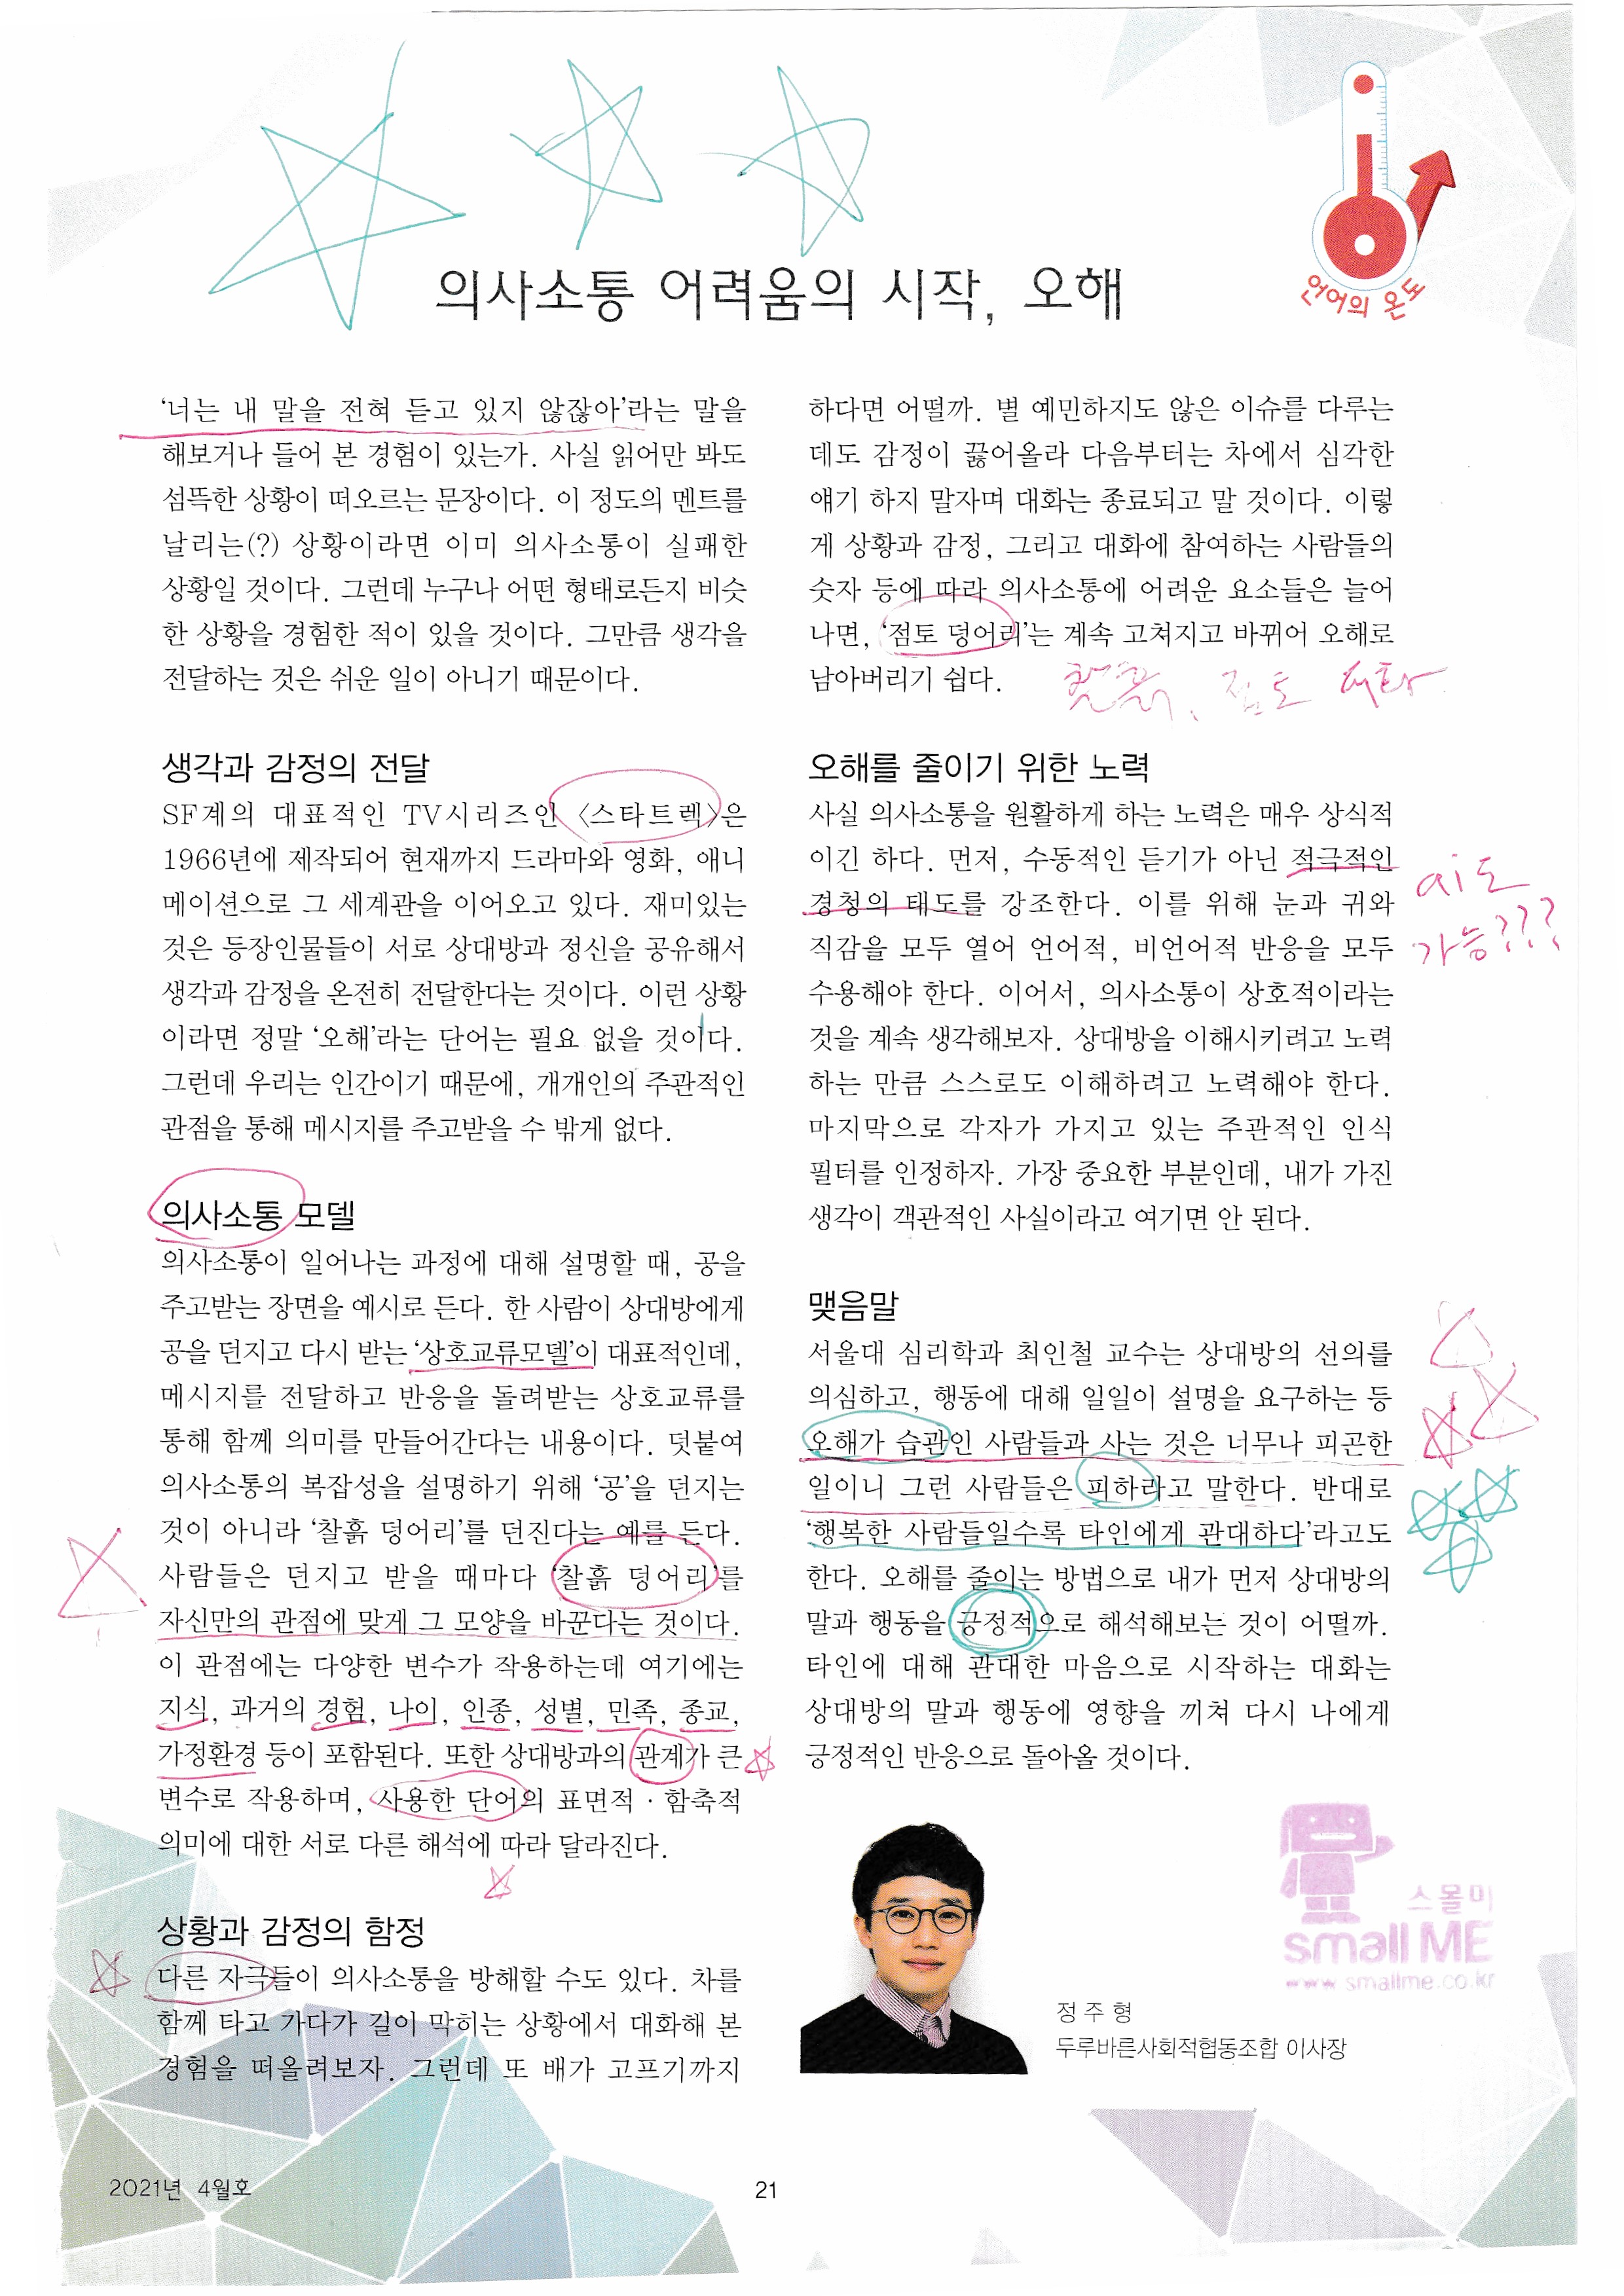 언어의 온도
의사소통 어려움의 시작, 오해
‘너는 내 말을 전혀 듣고 있지 않잖아’라는 말을
해보거나 들어 본 경험이 있는가. 사실 읽어만 봐도
섬뜩한 상황이 떠오르는 문장이다. 이 정도의 멘트를
날리는(?) 상황이라면 이미 의사소통이 실패한
상황일 것이다. 그런데 누구나 어떤 형태로든지 비슷
한 상황을 경험한 적이 있을 것이다. 그만큼 생각을
전달하는 것은 쉬운 일이 아니기 때문이다.
생각과 감정의 전달
SF계의 대표적인 TV시리즈인 〈스타트렉〉은
1966년에 제작되어 현재까지 드라마와 영화, 애니
메이션으로 그 세계관을 이어오고 있다. 재미있는
것은 등장인물들이 서로 상대방과 정신을 공유해서
생각과 감정을 온전히 전달한다는 것이다. 이런 상황
이라면 정말 ‘오해’라는 단어는 필요 없을 것이다.
그런데 우리는 인간이기 때문에, 개개인의 주관적인
관점을 통해 메시지를 주고받을 수 밖게 없다.
의사소통 모델
의사소통이 일어나는 과정에 대해 설명할 때, 공을
주고받는 장면을 예시로 든다. 한 사람이 상대방에게
공을 던지고 다시 받는 ‘상호교류모델’이 대표적인데,
메시지를 전달하고 반응을 돌려받는 상호교류를
통해 함께 의미를 만들어간다는 내용이다. 덧붙여
의사소통의 복잡성을 설명하기 위해 ‘공’을 던지는
것이 아니라 ‘찰흙 덩어리’를 던진다는 예를 든다.
사람들은 던지고 받을 때마다 ‘찰흙 덩어리’를
자신만의 관점에 맞게 그 모양을 바꾼다는 것이다.
이 관점에는 다양한 변수가 작용하는데 여기에는
지식, 과거의 경험, 나이, 인종, 성별, 민족, 종교,
가정환경 등이 포함된다. 또한 상대방과의 관계가 큰
변수로 작용하며, 사용한 단어의 표면적 · 함축적
의미에 대한 서로 다른 해석에 따라 달라진다.
상황과 감정의 함정
다른 자극들이 의사소통을 방해할 수도 있다. 차를
함께 타고 가다가 길이 막히는 상황에서 대화해 본
경험을 떠올려보자. 그런데 또 배가 고프기까지
하다면 어떨까. 별 예민하지도 않은 이슈를 다루는
데도 감정이 끓어올라 다음부터는 차에서 심각한
얘기 하지 말자며 대화는 종료되고 말 것이다. 이렇
게 상황과 감정, 그리고 대화에 참여하는 사람들의
숫자 등에 따라 의사소통에 어려운 요소들은 늘어
나면, ‘점토 덩어리’는 계속 고쳐지고 바뀌어 오해로
남아버리기 쉽다.
찰흙, 점토
오해를 줄이기 위한 노력
사실 의사소통을 원활하게 하는 노력은 매우 상식적
이긴 하다. 먼저, 수동적인 듣기가 아닌 적극적인
경청의 태도를 강조한다. 이를 위해 눈과 귀와
직감을 모두 열어 언어적, 비언어적 반응을 모두
수용해야 한다. 이어서, 의사소통이 상호적이라는
것을 계속 생각해보자. 상대방을 이해시키려고 노력
하는 만큼 스스로도 이해하려고 노력해야 한다.
마지막으로 각자가 가지고 있는 주관적인 인식
필터를 인정하자. 가장 중요한 부분인데, 내가 가진
생각이 객관적인 사실이라고 여기면 안 된다.
ai도
가능???
맺음말
서울대 심리학과 최인철 교수는 상대방의 선의를
의심하고, 행동에 대해 일일이 설명을 요구하는 등
오해가 습관인 사람들과 사는 것은 너무나 피곤한
일이니 그런 사람들은 피하라고 말한다. 반대로
‘행복한 사람들일수록 타인에게 관대하다’라고도
한다. 오해를 줄이는 방법으로 내가 먼저 상대방의
말과 행동을 긍정적으로 해석해보는 것이 어떨까.
타인에 대해 관대한 마음으로 시작하는 대화는
상대방의 말과 행동에 영향을 끼쳐 다시 나에게
긍정적인 반응으로 돌아올 것이다.
스몰미
small ME
www.smallme.co.kr
정 주 형
두루바른사회적협동조합 이사장
2021년 4월호
21